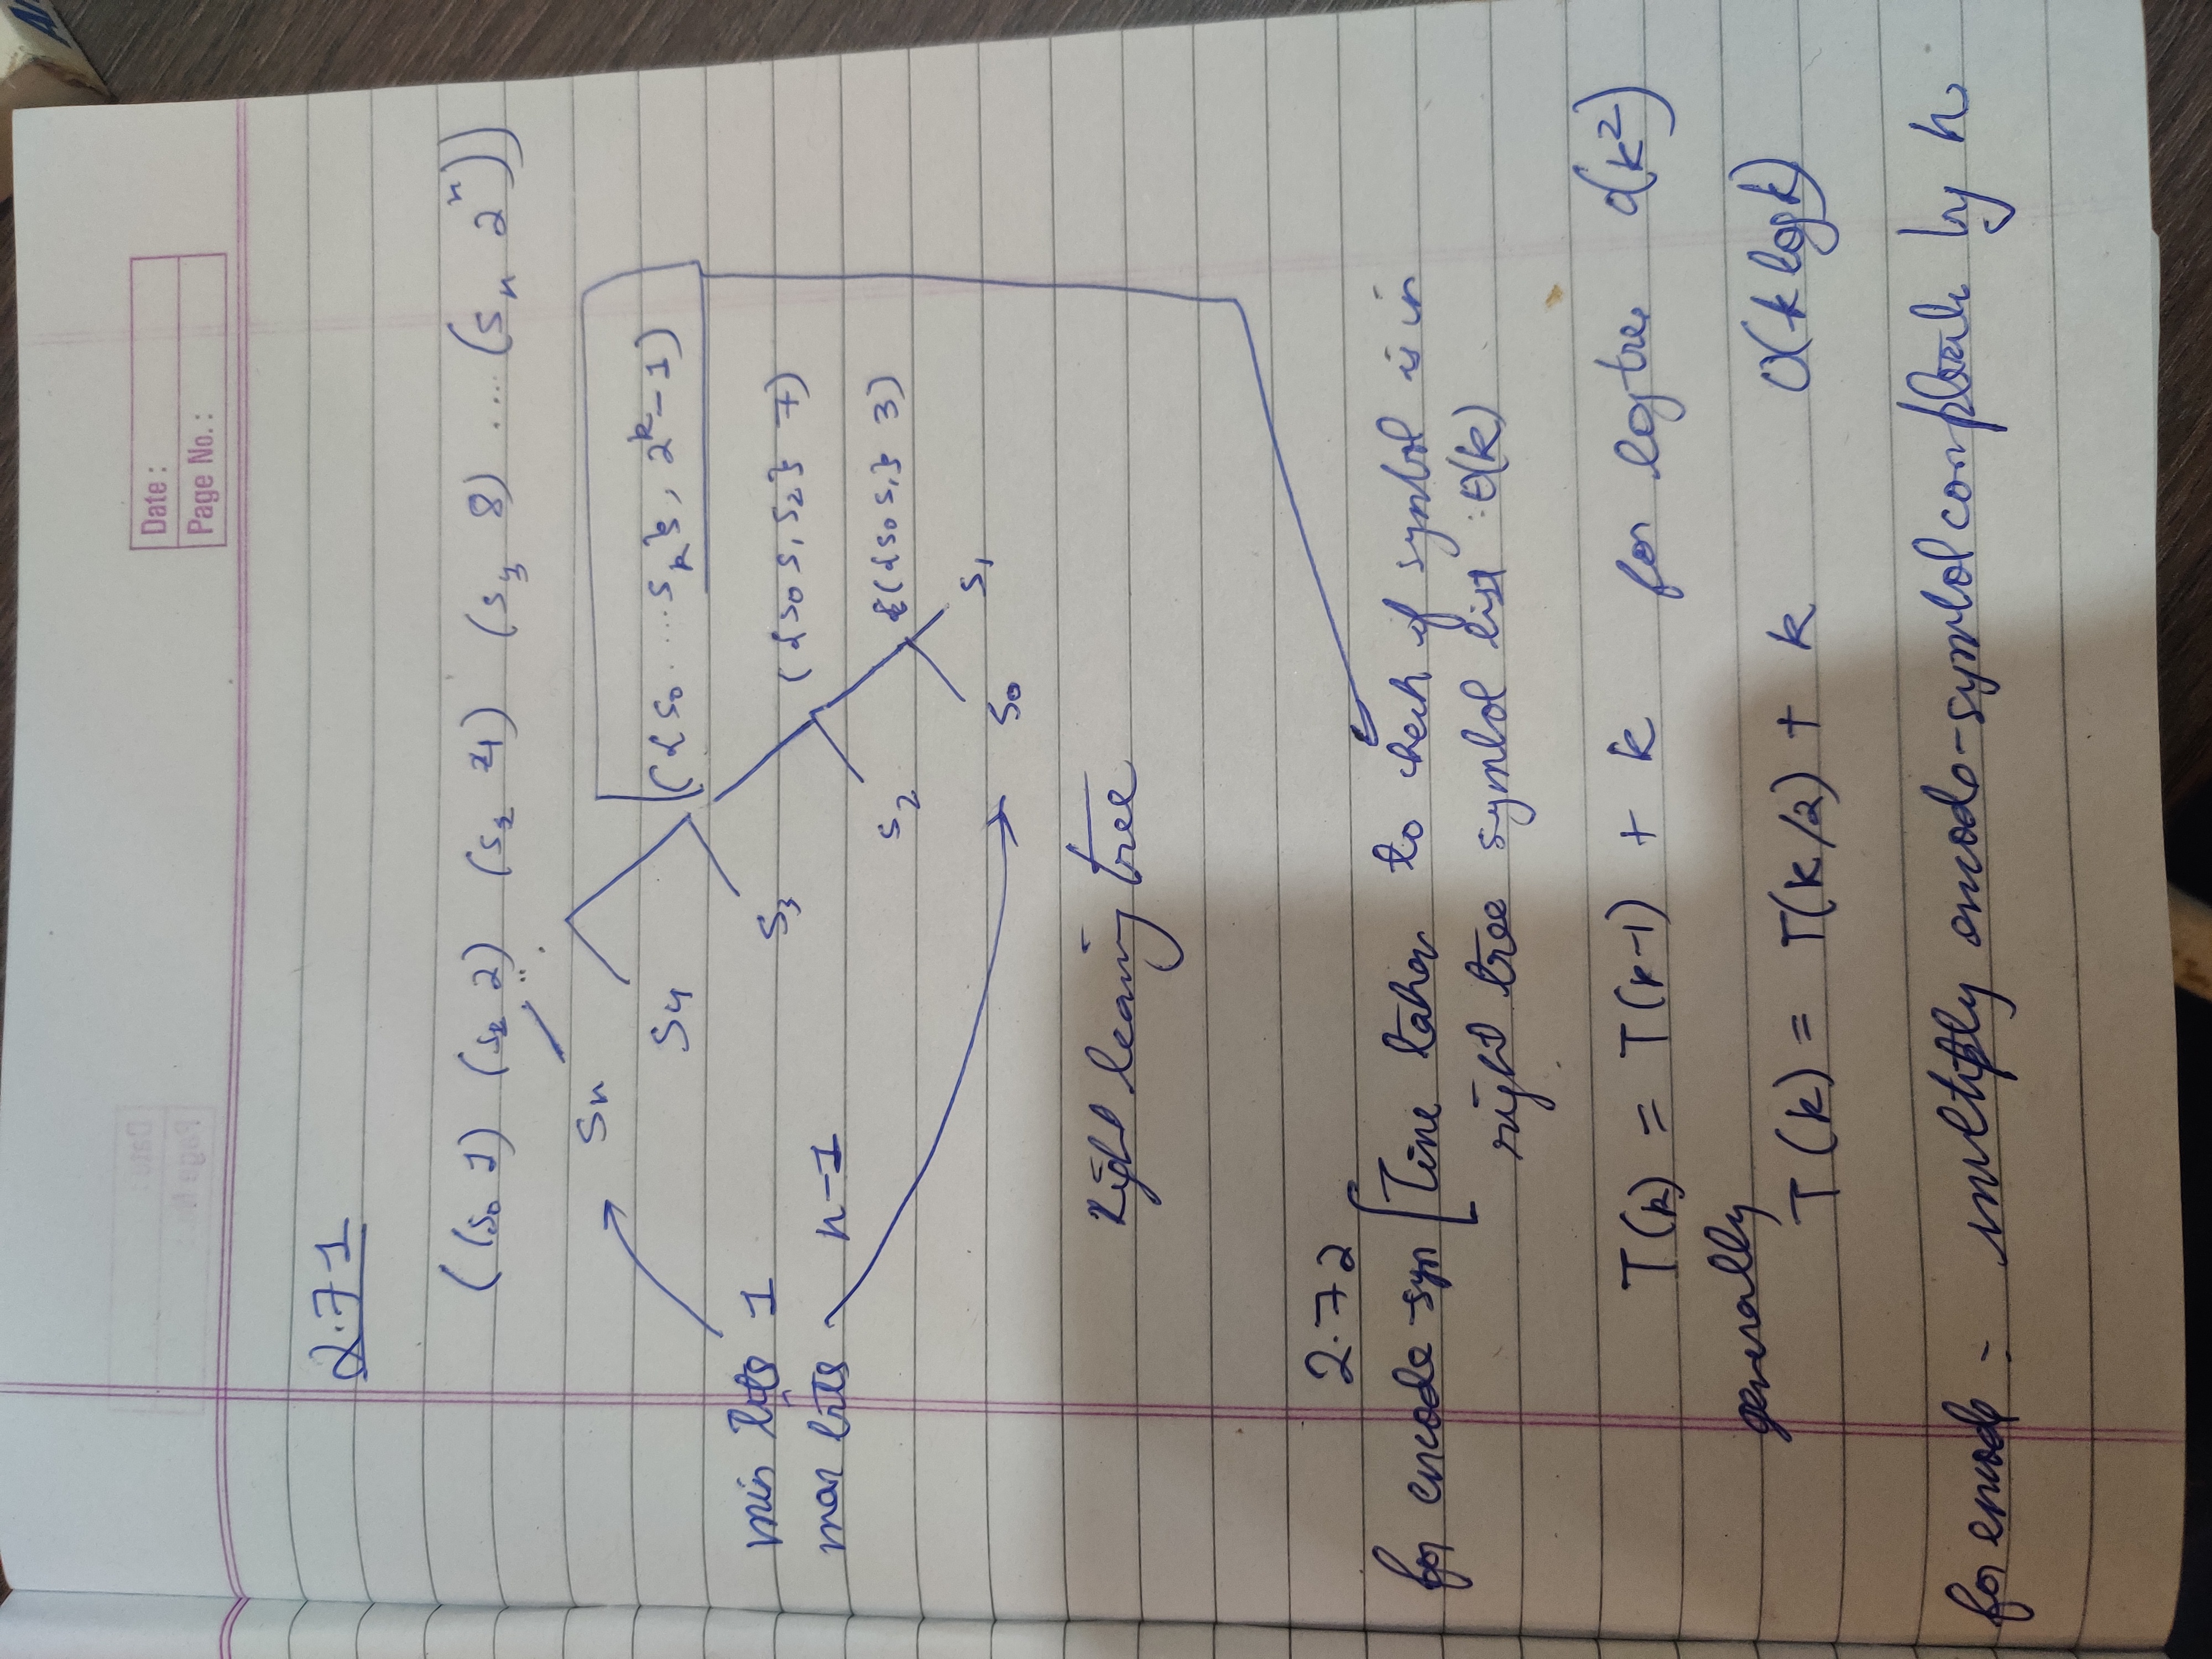 Date :
Page No. :
2.71
((s₀ 1) (s₂ 2) (s₂ 4) (s₃ 8) .... (sₙ 2ⁿ))
sₙ
s₄
({s₀ .... sₖ}, 2ᵏ-1)
min bits 1
s₃
({s₀ s₁ s₂} 7)
max bits n-1
s₂
({s₀ s₁} 3)
s₁
s₀
Right leaning tree
2.72
for encode-sym [Time taken to check if symbol is in
right tree symbol list : O(k)
T(k) = T(k-1) + k for log tree O(k²)
generally
T(k) = T(k/2) + k O(k log k)
for encode : multiply encode-symbol by n